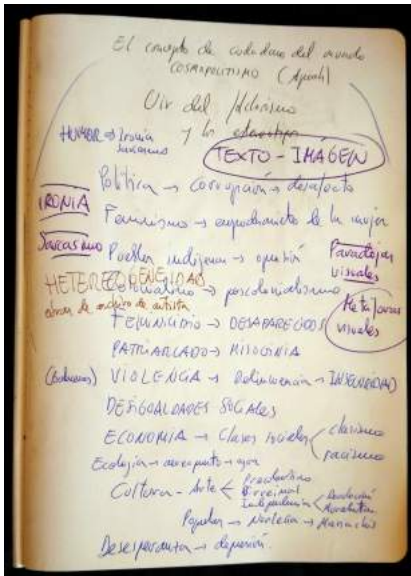 El concepto de ciudadano del mundo
COSMOPOLITISMO
Vivir del
HUMOR → Ironía
sarcasmo
y los
TEXTO - IMÁGEN
Política → corrupción → desafecto
IRONIA
Feminismo → empoderamiento de la mujer
Sarcasmo
Pueblos indígenas → opresión
Paradojas
visuales
HETEROGENEIDAD
→ poscolonialismo
obras de archivo de artista
Metáforas
visuales
FEMINICIDIO → DESAPARECIDOS
PATRIARCADO → MISOGINIA
VIOLENCIA → Delincuencia → INSEGURIDAD
DESIGUALDADES SOCIALES
ECONOMIA → Clases sociales
clasismo
racismo
Ecología → aeropuerto → agua
Cultura - Arte
Independencia
Revolución
Popular → → Mariachis
Desesperanza → depresión.